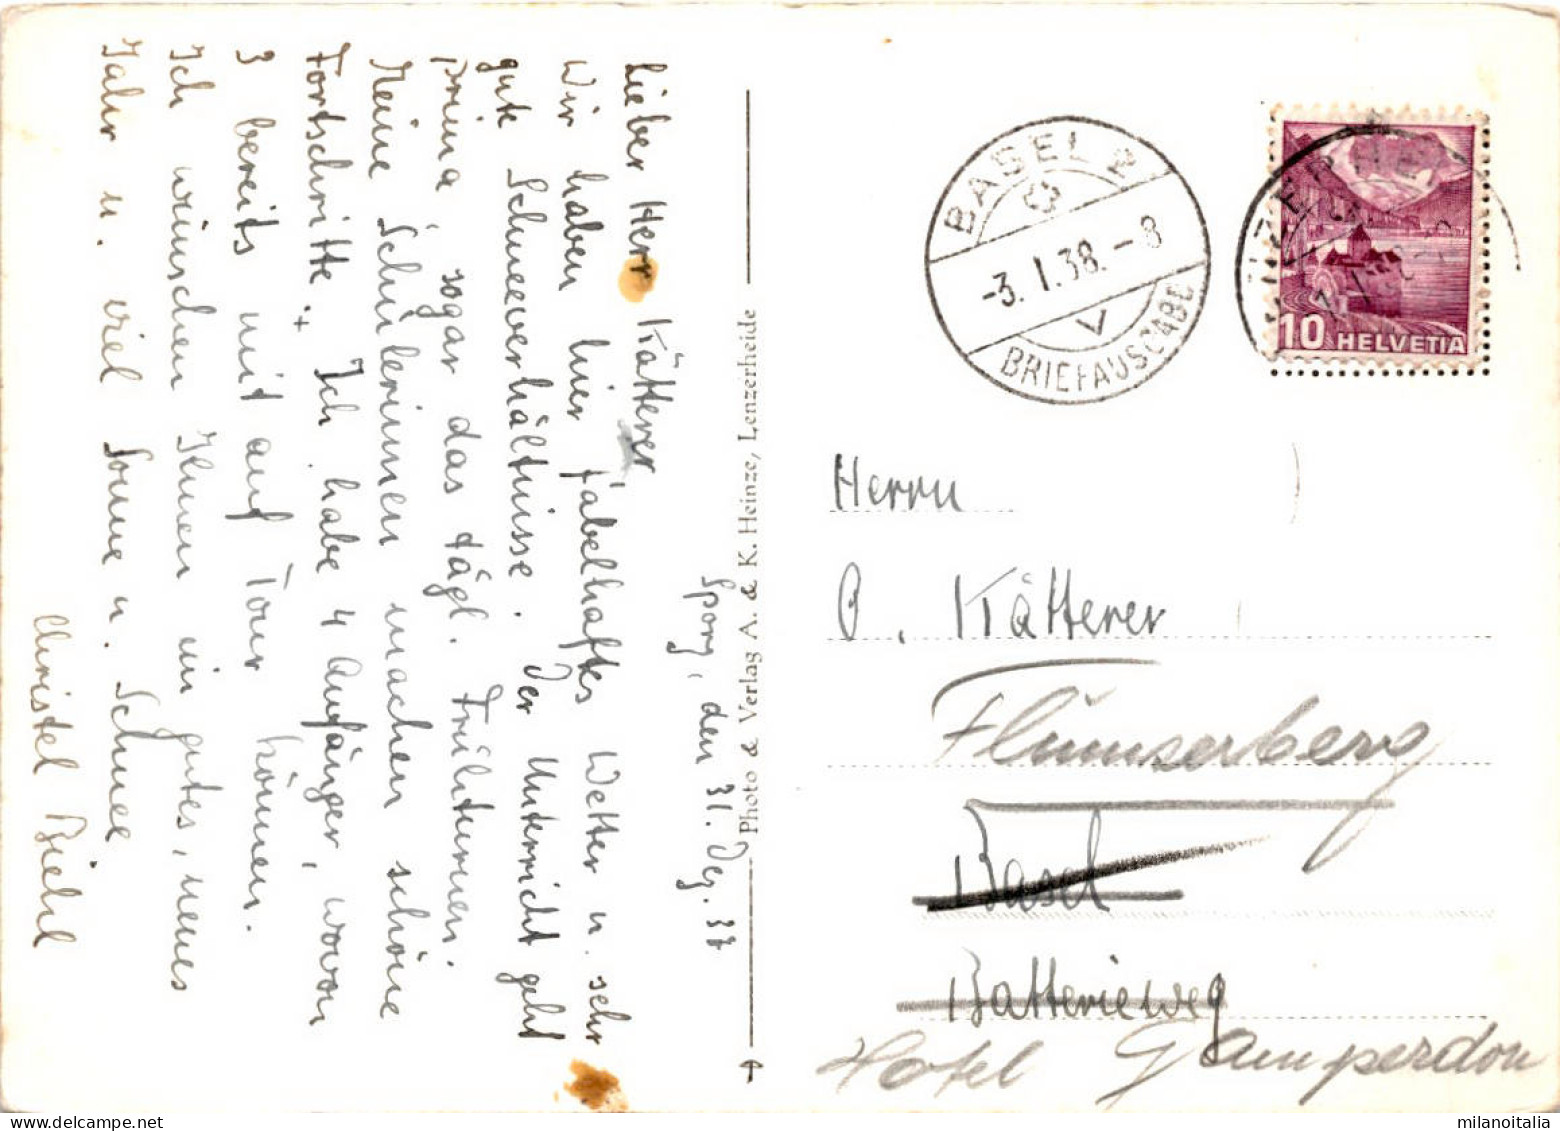 Sporz, den 31. Dez. 37
Lieber Herr Kätterer,
Wir haben hier fabelhaftes Wetter u. sehr
gute Schneeverhältnisse. Der Unterricht geht
prima, sogar das tägl. Frühturnen.
Meine Schülerinnen machen schöne
Fortschritte. Ich habe 4 Anfänger, wovon
3 bereits mit auf Tour können.
Ich wünschen Ihnen ein gutes, neues
Jahr u. viel Sonne u. Schnee
Christel Biehl
Photo & Verlag A. & K. Heinze, Lenzerheide
BASEL 2
-3.I.38.-8
V
BRIEFAUSGABE
10 HELVETIA
Herrn
O. Kätterer
Flumserberg
Basel
Batterieweg
Hotel Gamperdon
milanoitalia